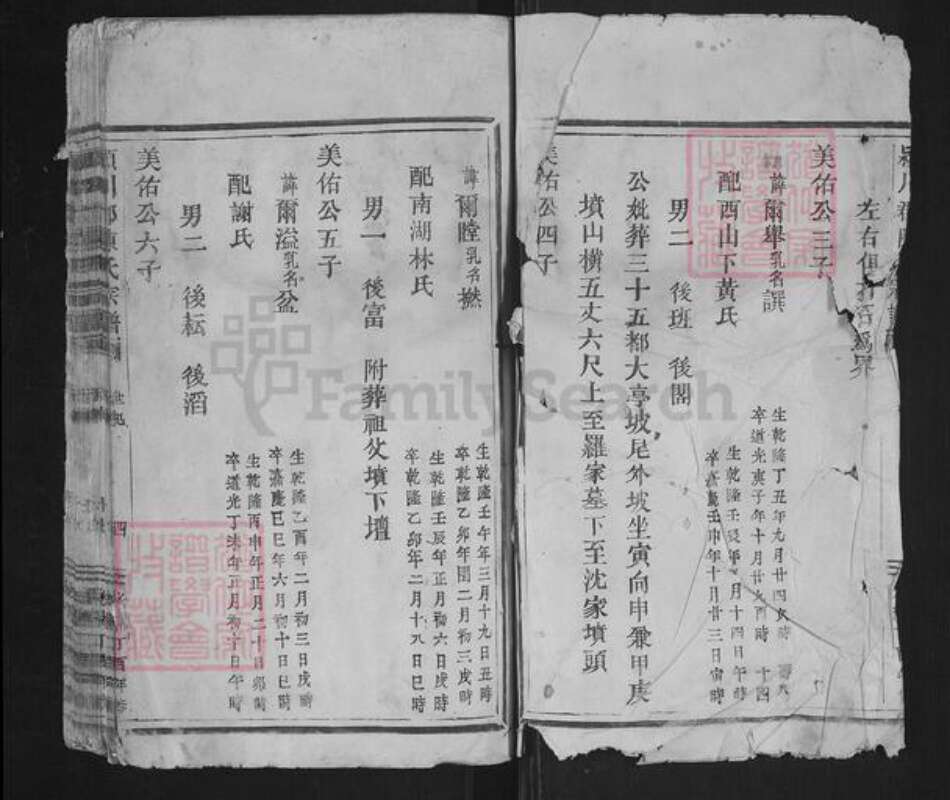 左右俱為界
美佑公三子
諱爾舉乳名譔
生乾隆丁丑年九月廿四亥時
卒道光庚子年十月廿九酉時
配西山下黃氏
生乾隆壬辰年月十四日午時
卒嘉慶壬申年十月廿三日寅時
男二 後班 後閣
公妣葬三十五都大亭坡尾外坡坐寅向申兼甲庚
墳山橫五丈六尺上至羅家墓下至沈家墳頭
美佑公四子
諱爾瞠乳名撚
生乾隆壬午年三月十九日丑時
卒乾隆乙卯年閏二月初三戌時
配南湖林氏
生乾隆壬辰年正月初六日戌時
卒乾隆乙卯年二月十八日巳時
男一 後富 附葬祖父墳下壇
美佑公五子
諱爾溢乳名盆
生乾隆乙酉年二月初三日戌時
卒嘉慶己巳年六月初十日巳時
配謝氏
生乾隆丙申年正月二十日卯時
卒道光丁未年正月初十日午時
男二 後耘 後滔
美佑公六子
FamilySearch